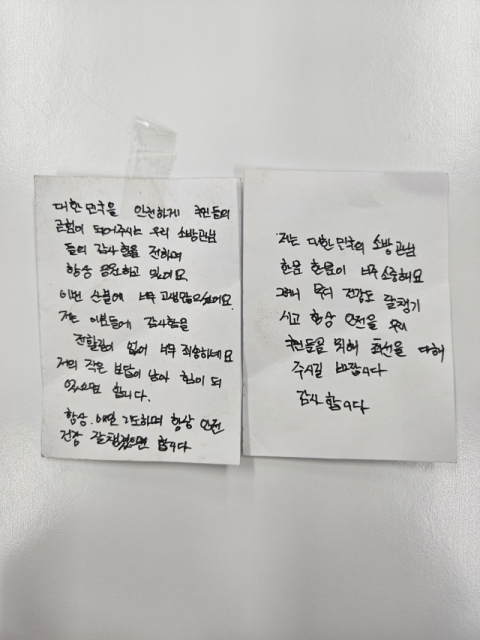 대한민국을 안전하게 국민들의
곁힘이 되어주시는 우리 소방관님
들의 감사함을 전하며
항상 응원하고 있어요
이번 산불에 너무 고생많으셨어요.
저는 이분들에 감사함을
전할길이 없어 너무 죄송하네요
저의 작은 보탬이 남아 힘이 되
었으면 합니다.
항상. 매일 기도하며 항상 안전
건강 잘챙겼으면 합니다
저는 대한민국의 소방관님
한분 한분이 너무 소중해요
그러니 모두 건강도 잘챙기
시고 항상 안전을 우선
국민들을 위해 최선을 다해
주시길 바랍니다
감사합니다